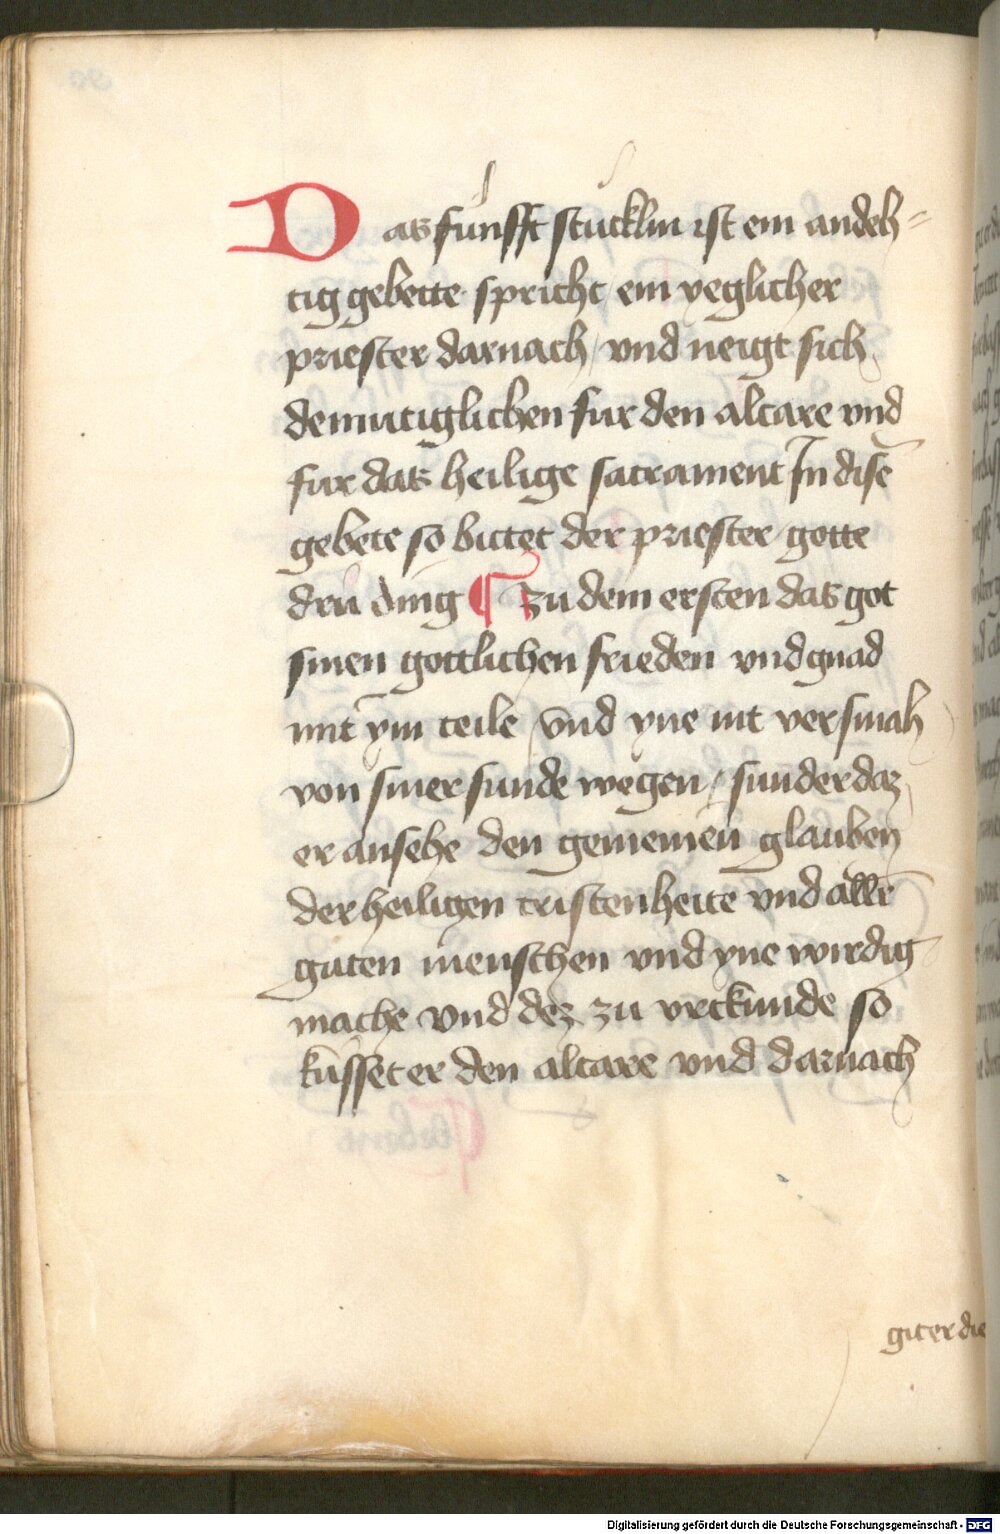 Das funfft stucklin ist ein andeh⸗
tig gebette spricht ein yeglicher
priester darnach / vnd neigt sich
demutiglichen fur den altare vnd
fur das heilige sacrament In disē
gebete so bittet der priester gotte
dru ding ¶ zu dem ersten das got
sinen gottlichen frieden vnd gnad
mit ym teile / vnd yne nit versmah
von siner sunde wegen / sunder daz
er ansehe den gemeinen glauben
der heiligen cristenheite vnd allr̄
guten menschen vnd yne wirdig
mache vnd dez zu vrkunde so
kusset er den altare vnd darnach
git er die
Digitalisierung gefördert durch die Deutsche Forschungsgemeinschaft - DFG